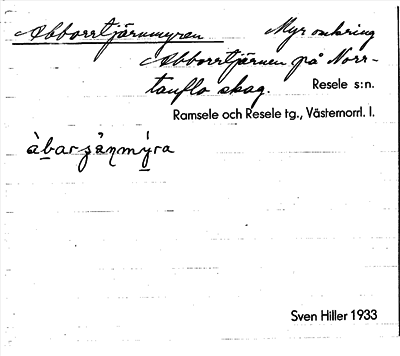 Abborrtjärnmyren Myr omkring
Abborrtjärnen på Norr-
tanflo skog. Resele s:n.
Ramsele och Resele tg., Västernorrl. l.
àbarʒäṇmýra
Sven Hiller 1933